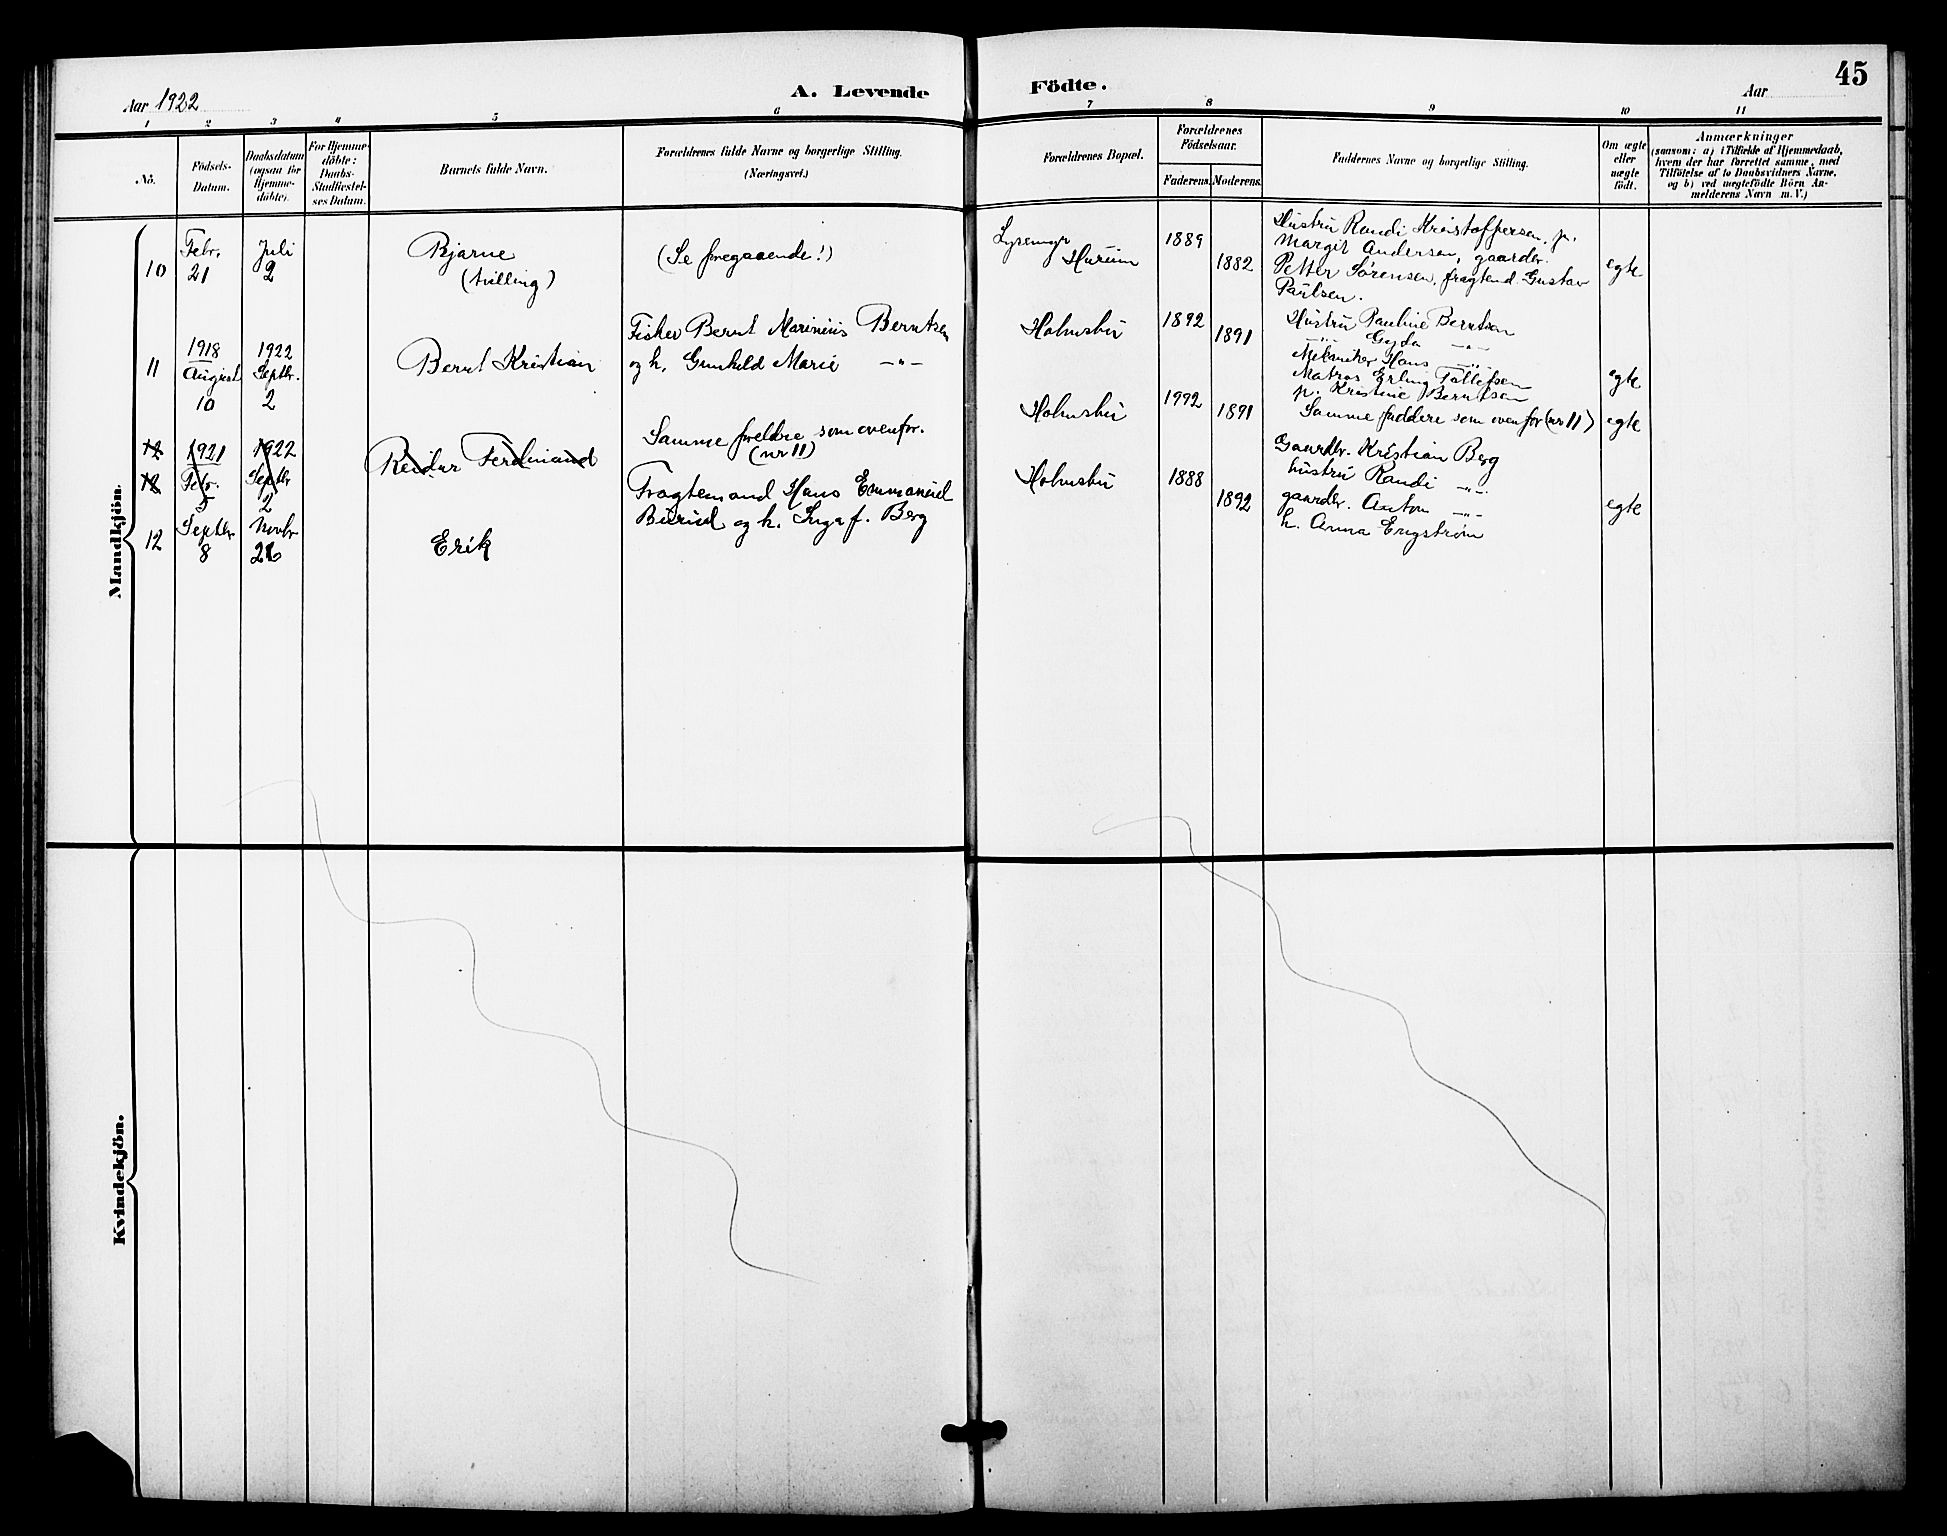 45
Aar 1922
A. Levende
Födte.
Aar
1 2 3 4 5 6
7 8 9 10 11
No.
Födsels-
Datum.
Daabsdatum
(ogsaa for
Hjemme-
döbte).
For Hjemme-
döbte:
Daabs-
Stadfæstel-
ses Datum.
Barnets fulde Navn.
Forældrenes fulde Navne og borgerlige Stilling.
(Næringsvei.)
Forældrenes Bopæl.
Forældrenes
Födselsaar.
Faderens.
Moderens.
Faddernes Navne og borgerlige Stilling.
Om ægte
eller
uægte
født.
Anmærkninger
(saasom: a) i Tilfælde af Hjemmedaab,
hvem der har forrettet samme, med
Tilföielse af to Daabsvidners Navne,
og b) ved uægtefödte Börn An-
melderens Navn m. V.)
Mandkjön.
10
Febr.
21
Juli
2
Bjarne
(tvilling)
(Se foregaaende!)
Hurum
1889
1882
Hustru Randi Kristoffersen, p.
Margit Andersen, gaardbr.
Petter Sørensen, fragtemd. Gustav
Paulsen.
egte
11
1918
August
10
1922
Septbr.
2
Bernt Kristian
Fisker Bernt Marinius Berntsen
og h. Gunhild Marie —"—
Holmsbu
1892
1891
Hustru Pauline Berntsen
—"— Gyda —"—
Mekaniker Hans —"—
Matros Erling Tollefsen
p. Kristine Berntsen
egte
12
12
1921
Febr.
5
1922
Septbr
2
Reidar Ferdinand
Samme foreldre som ovenfor.
(nr 11)
Holmsbu
1992
1891
Samme faddere som ovenfor (nr 11)
egte
12
Septbr
8
Novbr
26
Erik
Fragtemand Hans Emmanuel
Burud og h. Inga f. Berg
Holmsbu
1888
1892
Gaardbr. Kristian Berg
hustru Randi —"—
gaardbr. Anton —"—
h. Anna Engstrøm
egte
Kvindekjön.